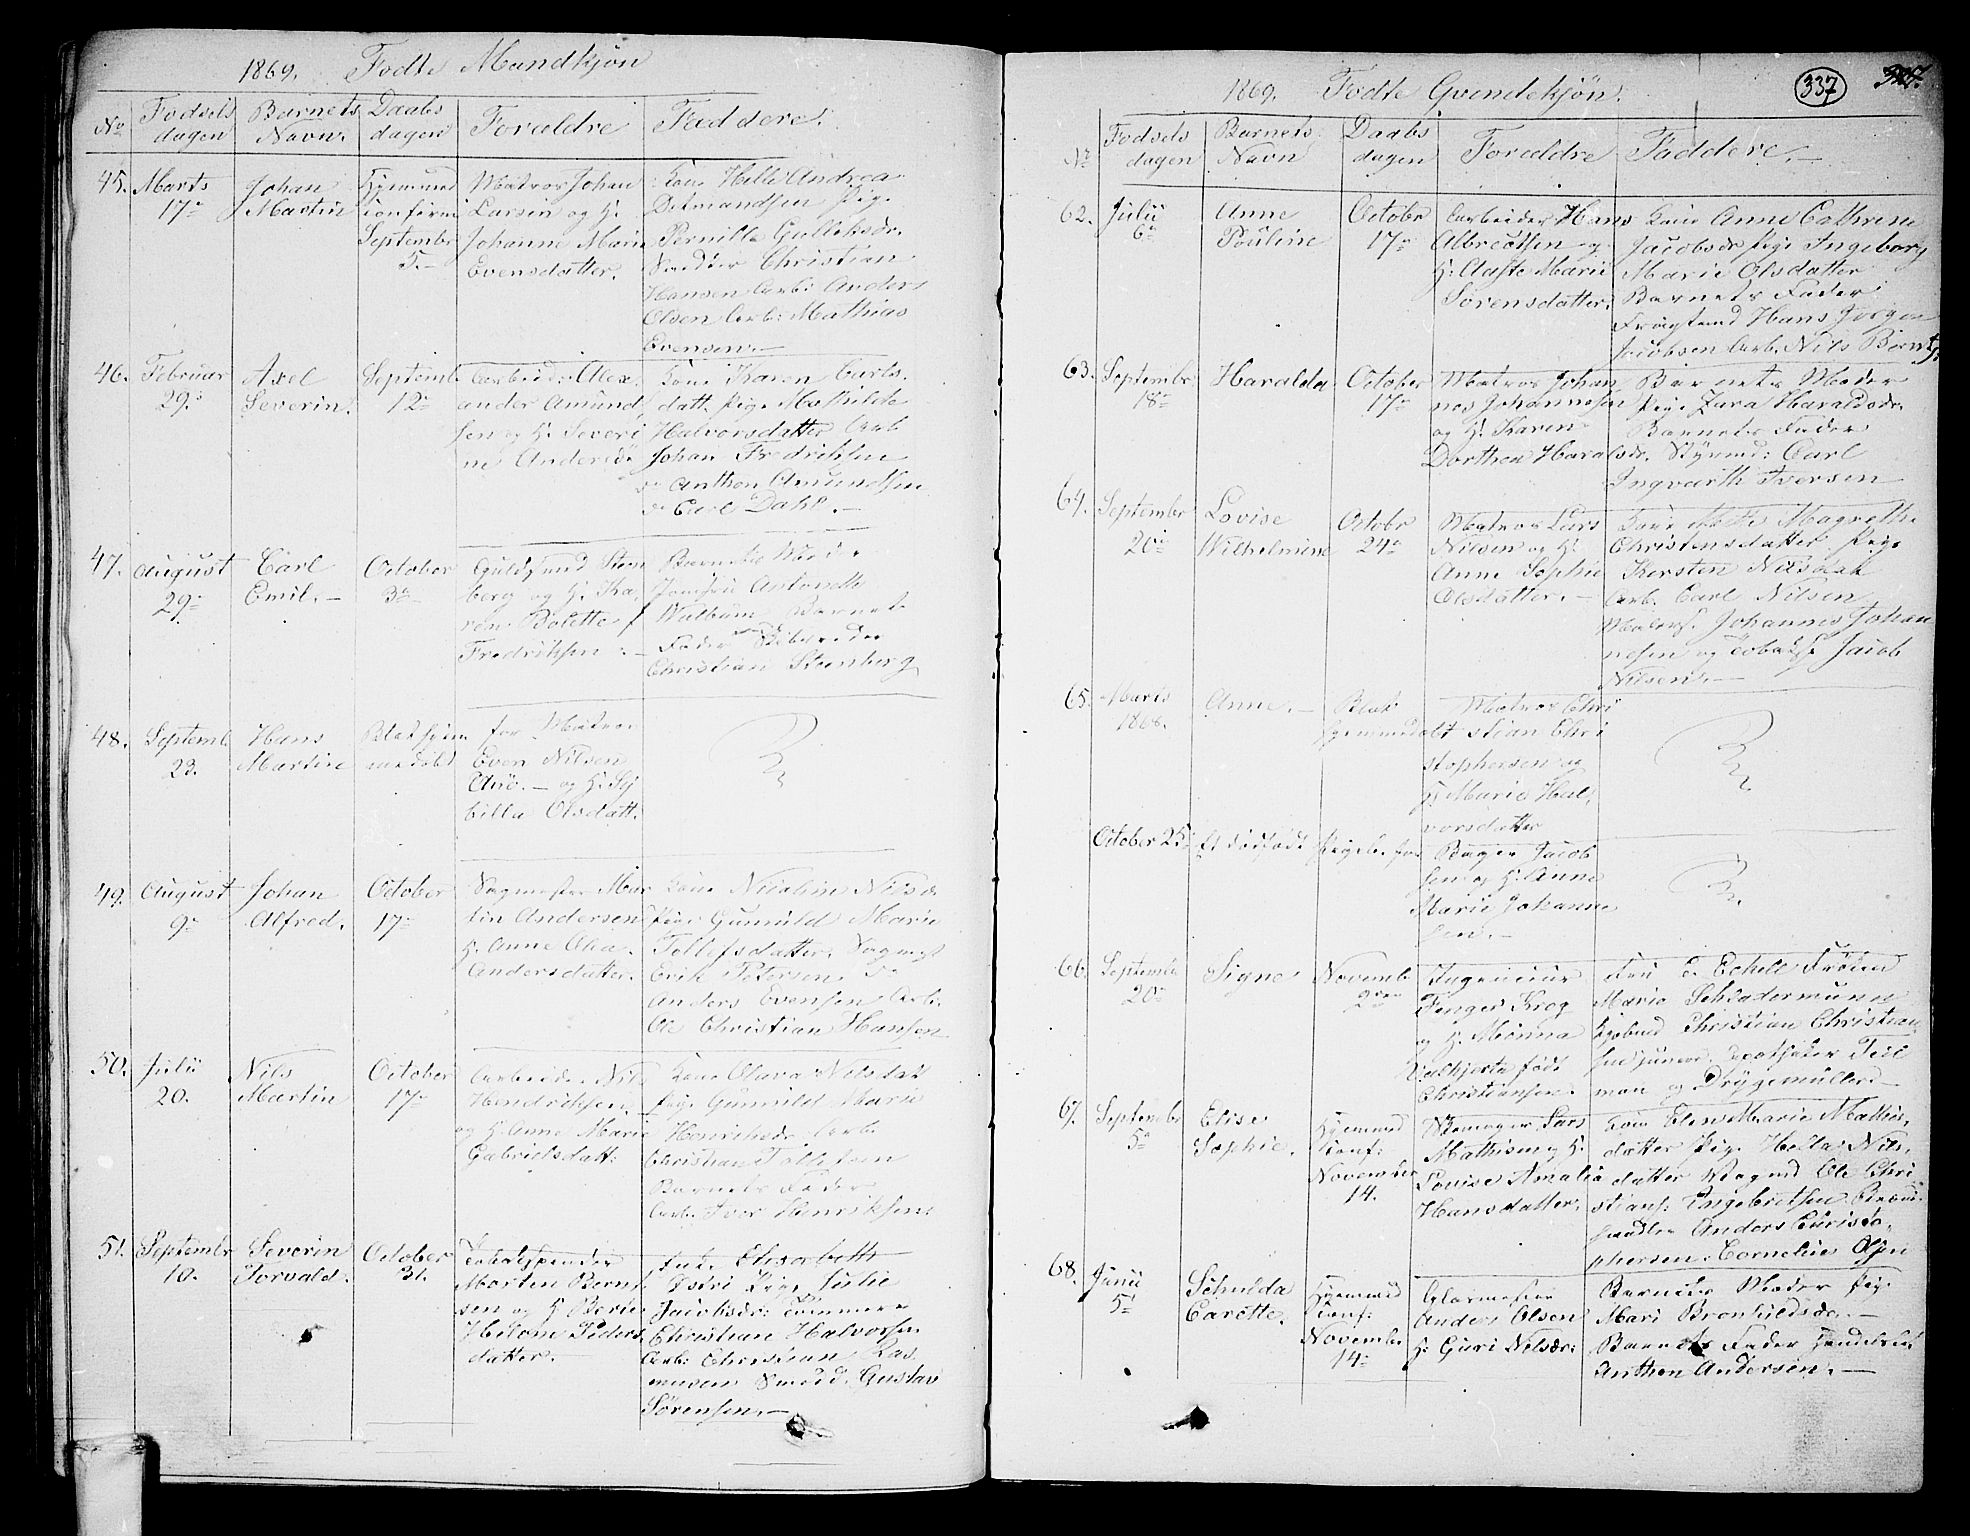 1869. Fodte Mandkjøn
No Fodsels dagen Barnets Navn. Daabs dagen Forældre Faddere.
45. Marts 17de Johan Martin Hjemmed confirm: September 5.-
Matros Johan
Larsen og H.
Johanne Marie
Evensdatter.
Kone Helle Andrea
Pige
Pernille Gulliksdr.
Smedder Christian
Hansen Arb: Anders
Olsen Arb: Mathias
Evensen.-
46. Februar 29. Axel Severin. Septemb. 12te
Arbeider Alex
ander Amund
sen og H. Severi
ne Andersd.
Kone Karen Carls.
datt. Pige Mathilde
Halvorsdatter Arb
Johan Fredriksen
do Anthon Amundsen
do Carl Dahl.-
47. August 29de Carl Emil.- October 3de
Guldsmed Sten
berg og H. Ka,
ren Bolette f
Fredriksen.
Barnets Moder
Jomfru Antonette
Walbum Barnets
Fader
Christian Steenberg
48. Septemb. 23. Hans Martin Blet hjem medøbt
for Matros
Even Nilsen
Arø.- og H. Sy
billa Olsdatt.
49. August 9de Johan Alfred. October 17de
Sagmester Mar
tin Andersen
H. Anne Olea
Andersdatter.
Kone Nicoline Nilsdr
Pige Gunnild Marie
Tollefsdatter. Sagmest
Erik Petersen. do
Anders Evensen Arb.
Ole Christian Hansen
50. Julii 20. Nils Martin October 17de
Arbeider Nils
Hendriksen.
og H. Anne Marie
Gabrielsdatt:
Kone Olava Nilsdatt
Pige Gunnild Marie
Henriksdr Arb.
Christian Tollefsen
Barnets Fader
Arb. Iver Henriksen
51. Septembr 10. Severin Torvald. October 31.
Tobakspinder
Morten Bernt
sen og H. Berte
Helene Peders
datter.-
Elisabeth
Østri Pige Julie
Jacobsdr: Tømmerm
Christian Halvorsen
Arb: Christian Ras
musen Smedd. Gustav
Sørensen.-
337
1869. Fodte Qvindekjøn.
No Fodsels dagen Barnets Navn Daabs dagen Forældre Faddere.-
62. Julii 6te Anne Pouline Octobr 17de
Arbeider Hans
Albretsen og
H. Aaste Marie
Sørensdatter.
Kone Anne Cathrine
Jacobsdr Pige Ingeborg
Marie Olsdatter
Barnets Fader
Fragtmd Hans Jørgen
Jacobsen Arb. Nils Bernts.
63. Septembr 18de Haralda October 17de
Matros Johan
nes Johannesen
og H. Karen
Dorthea Haralsdr.
Barnets Moder
Pige Zara Haraldsdr.
Barnets Fader
Styrmd: Carl
Ingvarth Iversen
64. Septembr 20de Lovise Wilhelmine Octobr 24de
Matros Lars
Nilsen og H.
Anne Sophie
Olsdatter.-
Kone Mette Magrethe
Christensdatter Pige
Kersten Nilsdatt
Arb. Carl Nilsen
Malers. Johannes Johan
nesen og Tobaksf Jacob
Nilsen.-
65. Marts 1868. Anne.- Blet hjemmedøbt
Matros Chri
stian Chri
stophersen og
H. Marie Hal,
vorsdatter
October 25de Et dødfødt Pigeb. for
Bager Jacob
sen og H. Anne
Marie Johanne
sen.-
66. Septembr 20de Signe Novembr 2den
Ingenieur
Fenger Krog
og H. Minna
Valhjerta født
Christiansen.
Fru E. Echell Frøken
Marie Schladermunn
Kjøbmd Christian Christian
sen junior. Apotheker Teil
man og Drygemüller.-
67. Septembr 5te Elise Sophie. Hjemmed Conf: November 14.
Skomager Lars
Mathisen og H.
Lovise Amalia
Hansdatter.
Kone Elen Marie Mathis,
datter Pige Helle Nils,
datter Vognmd Ole Chri
stians. Ingebretsen Brænd
handler Anders Christo,
phersen. Cornelius Olsen
68. Junii 5te Schulda Carette. Hjemmed Conf: Novembr 14de
Glarmester
Anders Olsen
H. Guri Nilsdr:
Barnets Moder Pige
Mari Bronhildsdr.-
Barnets Fader Handelsb.
Anthon Andersen.-